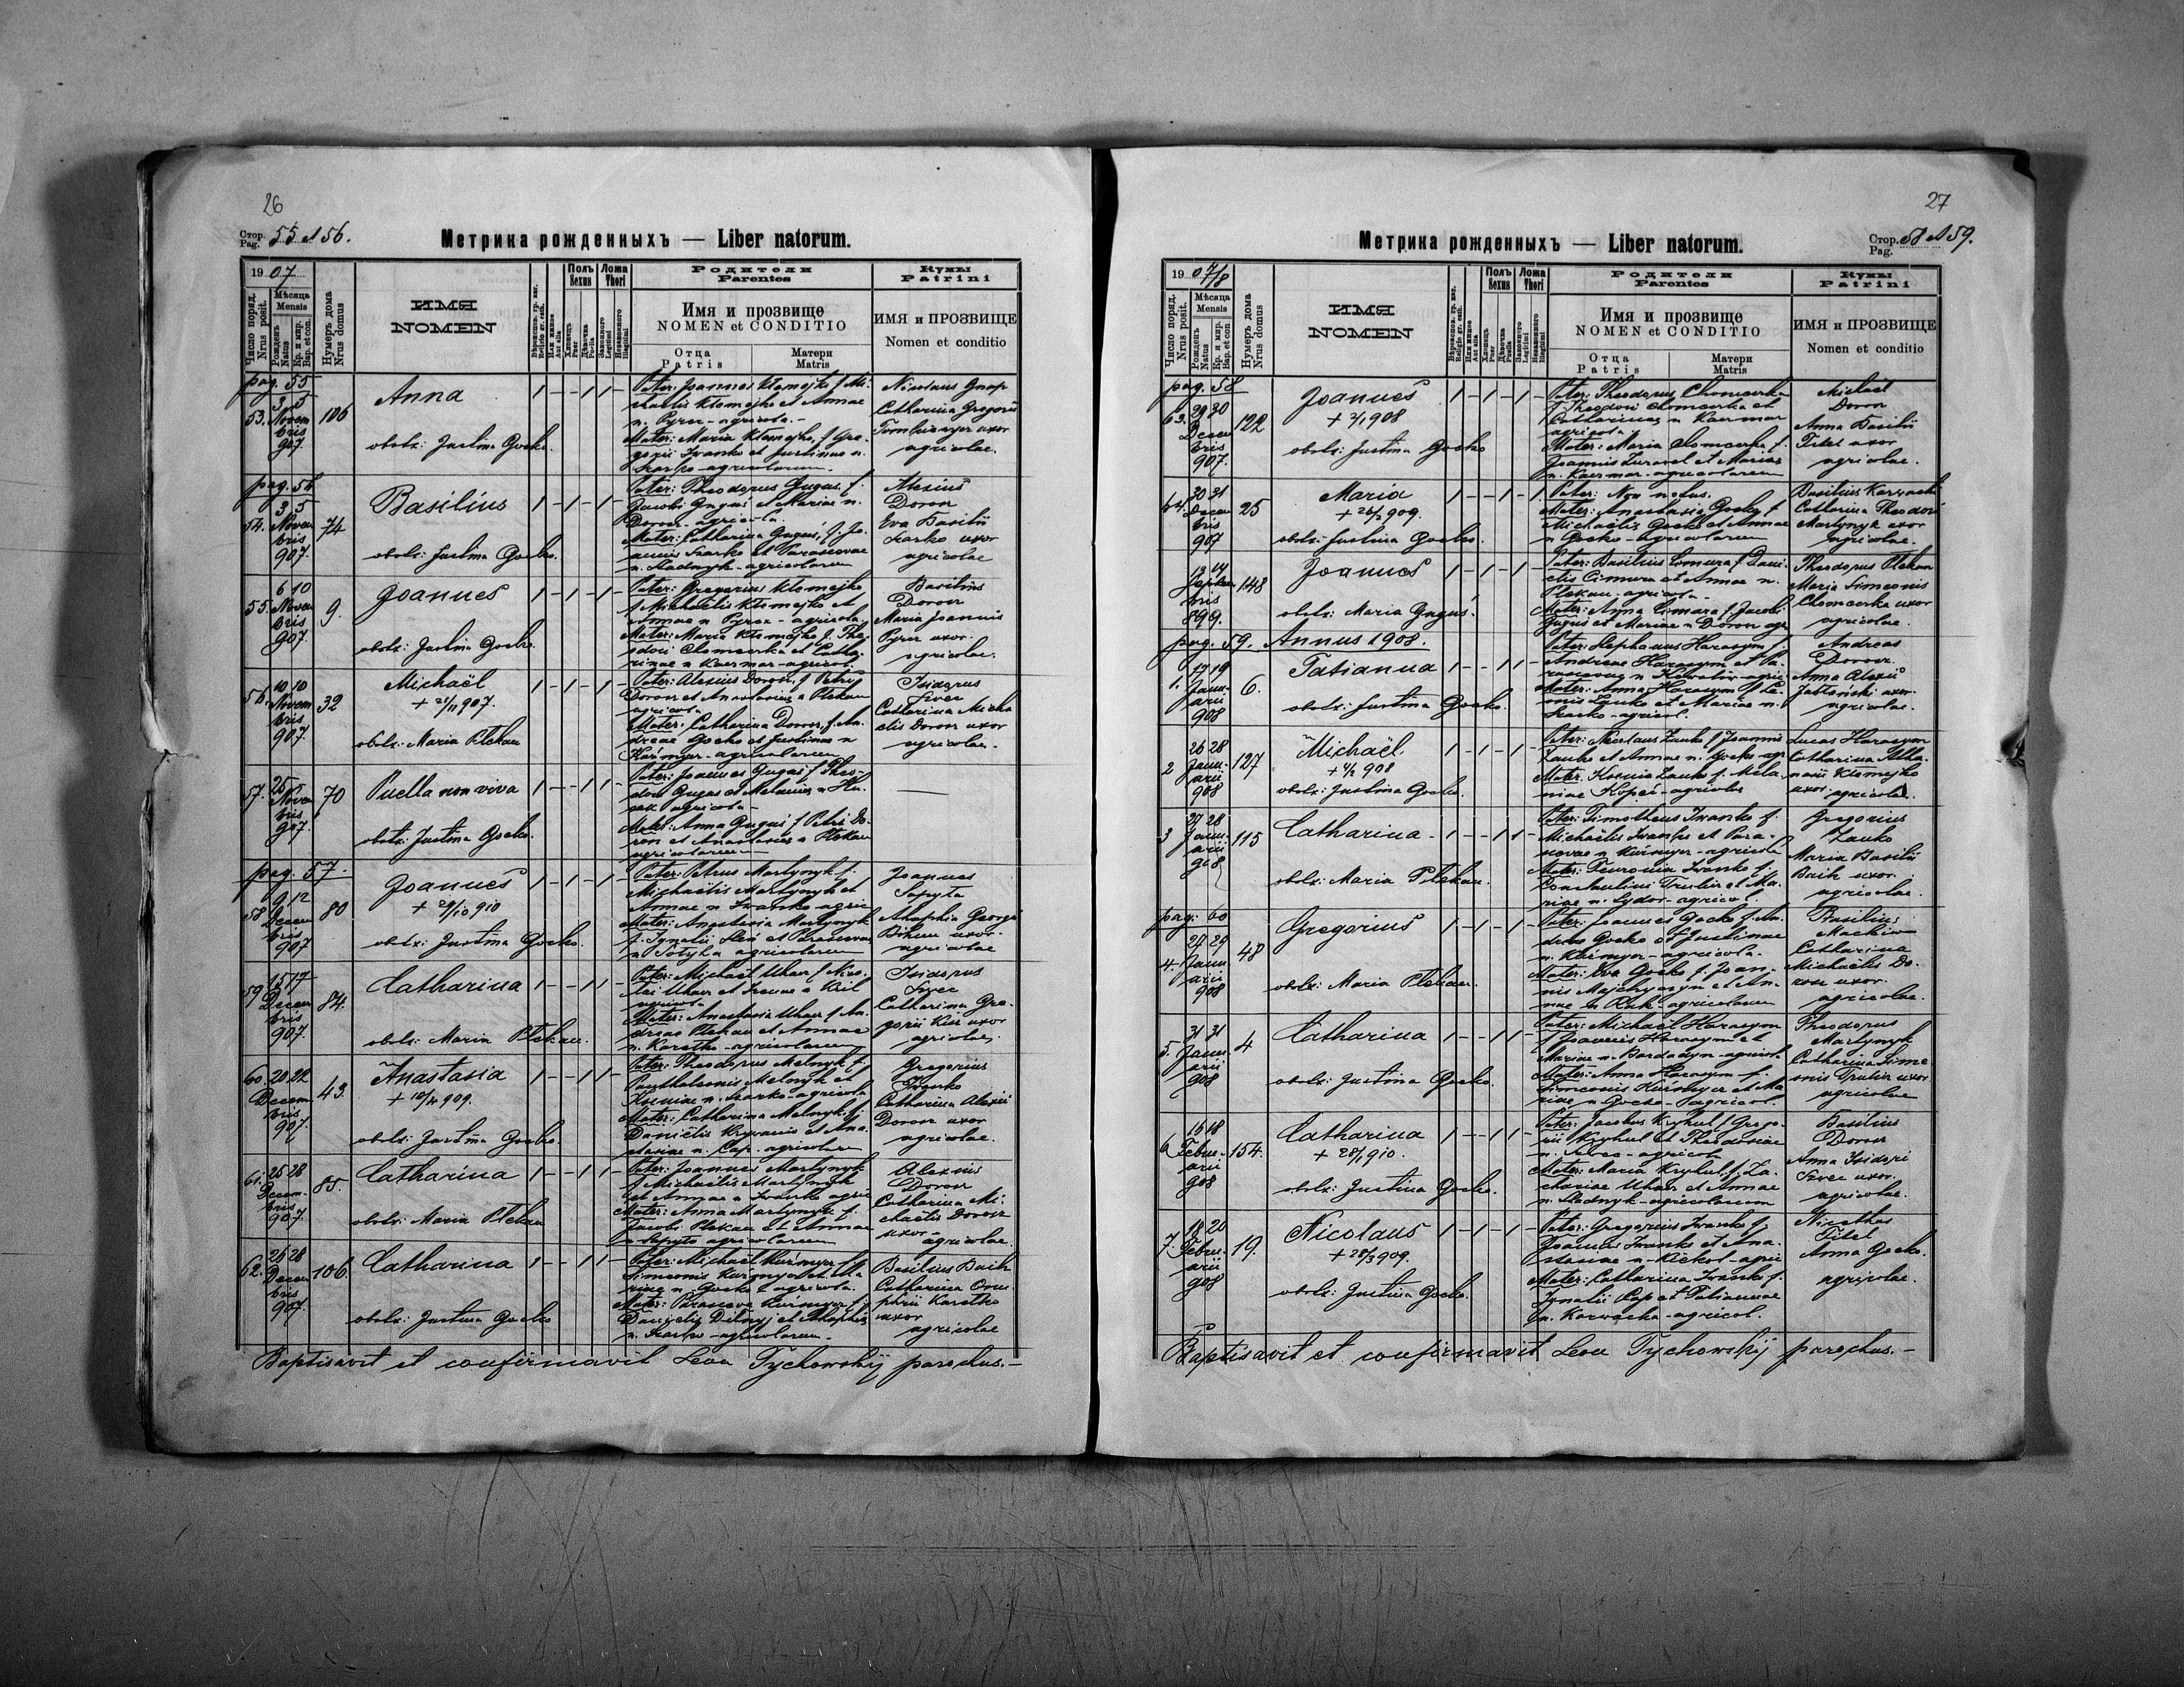 26
Стор. Pag. 55 et 56.
Метрика рожденныхъ — Liber natorum.
1907
Число поряд. Nrus posit.
Мѣсяца Mensis
Рожденъ Natus
Кр. и мир. Bap. et con.
Нумеръ дома Nrus domus
ИМЯ
NOMEN
Полъ Sexus
Ложа Thori
Родители
Parentes
Имя и прозвище
NOMEN et CONDITIO
Отца Patris
Матери Matris
Кумы
Patrini
ИМЯ и ПРОЗВИЩЕ
Nomen et conditio
pag. 55
53. 3 5 Novembris 907. 106
Anna
obstz: Justina Gocko.
Pater: Joannes Kłomejko f. Mi-
chaelis Kłomejko et Annae
n. Pyroz - agricola. -
Mater: Maria Kłomejko, f. Gre-
gorii Iwanko et Justinae n.
Szarko - agricolarum. -
Nicolaus Gnap
Catharina Gregorii
uxor
agricolae.
pag. 56
54. 3 5 Novembris 907. 74
Basilius
obstz: Justina Gocko.
Pater: Theodorus Guguś, f.
Jacobi Guguś et Mariae n.
Dorosz - agricola.
Mater: Catharina Guguś, f. Jo-
annis Szarko et Parascevae
n. Stadnyk - agricolarum
Alexius
Dorosz
Eva Basilii
Szarko uxor
agricolae
55. 6 10 Novembris 907. 9.
Joannes
obstz: Justina Gocko.
Pater: Gregorius Kłomejko
f. Michaelis Kłomejko et
Annae n. Pyroz - agricola
Mater: Maria Kłomejko f. Theo-
dori Chomcerka et Catha-
rinae n. Kuzmar - agricol.
Basilius
Dorosz
Maria Joannis
Pyroz uxor.
agricolae.
56. 10 10 Novembris 907. 32
Michaël
+ 21/11 907.
obstz: Maria Płekan
Pater: Alexius Dorosz, f. Petri
Dorosz et Anastasiae n. Płekan
agricola
Mater: Catharina Dorosz, f. An-
dreae Gocko et Justinae n.
Kuźmyn - agricolarum
Isidorus
Szwec
Catharina Micha-
elis Dorosz uxor
agricolae.
57. 25 Novembris 907. 70
Puella non viva
obstz: Justina Gocko.
Pater: Joannes Guguś f. Theo-
dori Guguś et Melaniae n.
agricola -
Mater: Anna Guguś f. Petri Do-
rosz et Anastasiae n. Płekan
agricolarum
pag. 57.
58 9 12 Decembris 907 80
Joannes
+ 29/10 910
obstz: Justina Gocko.
Pater: Petrus Martynyk f.
Michaëlis Martynyk et
Annae n. Iwanko agric
Mater: Anastasia Martynyk
f. Ignatii et Parascevae
agricolarum
Joannes
Sopyta
Ahaphia Georgii
uxor
agricolae
59 15 17 Decembris 907. 84.
Catharina
obstz: Maria Płekan.
Pater: Michaël Uhacz f. Nico-
lai Uhacz et Irenae n. Kril
agricola
Mater: Anastasia Uhacz f. An-
dreae Płekan et Annae
n. Koretko - agricolarum
Isidorus
Szwec
Catharina Gre-
gorii uxor
agricolae.
60. 20 22 Decembris 907. 43.
Anastasia
+ 909.
obstz: Justina Gocko.
Pater: Theodorus Melnyk f.
Melnyk et
Kseniae n. Szarko - agricola
Mater: Catharina Melnyk f.
Daniëlis et Ana-
stasiae n. Cap. agricolarum
Gregorius
Iwanko
Catharina Alexii
Dorosz uxor
agricolae.
61. 25 28 Decembris 907. 85.
Catharina
obstz: Maria Płekan
Pater: Joannes Martynyk
f. Michaëlis Martynyk
et Annae n. Iwanko agric
Mater: Anna Martynyk f.
Jacobi Płekan et Annae
n. Sopyta agricolarum
Alexius
Dorosz
Catharina Mi-
chaëlis Dorosz
uxor -
agricolae.
62. 26 28 Decembris 907. 106.
Catharina
obstz: Justina Gocko
Pater: Michaël Kuźmyn f.
Simeonis Kuźmyn et Ma-
riae n. Gocko agricola.
Mater: Parasceve Kuźmyn f.
Daniëlis et Ahaphiae
n. Szarko - agricolarum. -
Basilius Baik
Catharina Onu-
phrii Koretko
uxor
agricolae
Baptisavit et confirmavit Leon Tychowskij parochus. -
27
Стор. Pag. 58 et 59.
Метрика рожденныхъ — Liber natorum.
1907/8
Число поряд. Nrus posit.
Мѣсяца Mensis
Рожденъ Natus
Кр. и мир. Bap. et con.
Нумеръ дома Nrus domus
ИМЯ
NOMEN
Полъ Sexus
Ложа Thori
Родители
Parentes
Имя и прозвище
NOMEN et CONDITIO
Отца Patris
Матери Matris
Кумы
Patrini
ИМЯ и ПРОЗВИЩЕ
Nomen et conditio
pag. 58
63. 29 30 Decembris 907. 122
Joannes
+ 908
obstz: Justina Gocko
Pater: Theodorus Chomcerka
f. Theodori Chomcerka et
Catharinae n. Kuzmar
agricola
Mater: Maria Chomcerka f.
Joannis Zurawel et Mariae
n. Kuzmar - agricolarum
Michael
Dorosz
Anna Basilii
Titel uxor
agricolae.
64. 30 31 Decembris 907 25
Maria
+ 26/2 909.
obstz: Justina Gocko.
Pater: Non notus.
Mater: Anastasia Gocko f.
Michaëlis Gocko et Annae
n. Gocko - agricolarum
Basilius
Catharina Theodori
Martynyk uxor
agricolae.
13 14 Septembris 899. 148
Joannes
obstz: Maria Guguś.
Pater: Basilius Comura f. Dani-
elis Cimura et Annae n.
Płekan - agricola -
Mater: Anna Comura f. Jacobi
Guguś et Mariae n. Dorosz agr.
Theodorus Płekan
Maria Simeonis
Chomcerka uxor
agricolae.
pag. 59. Annus 1908.
1. 17 19 Januarii 908 6.
Tatianna
obstz: Justina Gocko.
Pater: Stephanus Harasym f.
Andreae Harasym et Pa-
rascevae n. Kowaliw - agric
Mater: Anna Harasym f. Le-
onis Zauko et Mariae n.
Szarko - agricol.
Andreas
Dorosz.
Anna Alexii
Jabłoński uxor
agricolae.
2 26 28 Januarii 908 127
Michaël.
+ 4/2 908
obstz: Justina Gocko.
Pater: Nicolaus Zauko f. Joannis
Zauko et Annae n. Gocko agr
Mater: Ksenia Zauko f. Mela-
niae Kopeć - agricolae
Lucas Harasym
Catharina Atha-
nasii Kłomejko
uxor. agricolae.
3 27 28 Januarii 908 115
Catharina
obstz: Maria Płekan.
Pater: Timotheus Iwanko f.
Michaëlis Iwanko et Para-
scevae n. Kuźmyn - agricola
Mater: Fevronia Iwanko f.
Constantini Trutin et Ma-
riae n. Sydor - agricol.
Gregorius
Zauko
Maria Basilii
Baik uxor
agricolae.
pag. 60
4. 27 29 Januarii 908 48
Gregorius
obstz: Maria Płekan.
Pater: Joannes Gocko f. An-
dreae Gocko et Justinae
n. Kuźmyn - agricola.
Mater: Eva Gocko f. Joan-
nis et An-
nae n. agricolarum
Basilius
Machiw
Catharina
Michaëlis Do-
rosz uxor.
agricolae.
5. 31 31 Januarii 908 4
Catharina
obstz: Justina Gocko.
Pater: Michaël Harasym
f. Joannis Harasym et
Mariae n. Bordadyn - agricol.
Mater: Anna Harasym f.
Simeonis Kuźmyn et Ma-
riae n. Gocko - agricol.
Theodorus
Martynyk
Catharina Sime-
onis Trutin uxor
agricolae
6 16 18 Februarii 908 154.
Catharina
+ 28/1 910.
obstz: Justina Gocko.
Pater: Jacobus Kryhul f. Grego-
rii Kryhul et Theodosiae
n. Szwec - agricola
Mater: Maria Kryhul, f. Za-
chariae Uhacz et Annae
n. Stadnyk - agricolarum
Basilius
Dorosz
Anna Isidori
Szwec uxor.
agricolae.
7. 18 20 Februarii 908 19.
Nicolaus
+ 28/3 909.
obstz: Justina Gocko.
Pater: Gregorius Iwanko f.
Joannis Iwanko et Ana-
stasiae n. Kickot - agric
Mater: Catharina Iwanko f.
Ignatii Cap et Tatiannae
n. Korwacka - agricol.
Nicethas
Titel
Anna Gocko.
agricolae.
Baptisavit et confirmavit Leon Tychowskij parochus. -